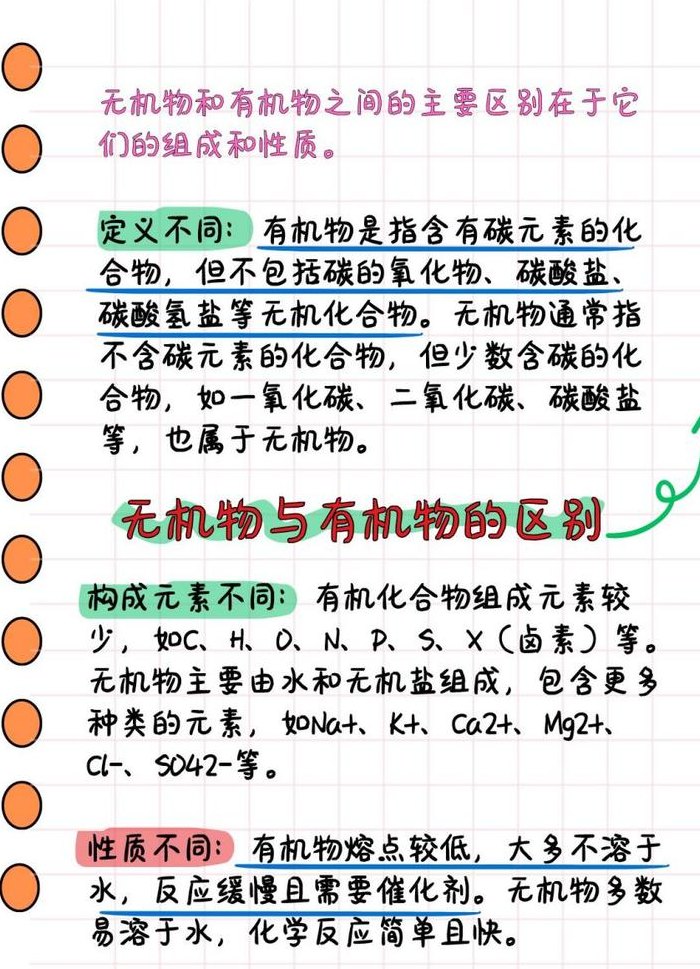 无机物和有机物之间的主要区别在于它
们的组成和性质。
定义不同：有机物是指含有碳元素的化
合物，但不包括碳的氧化物、碳酸盐、
碳酸氢盐等无机化合物。无机物通常指
不含碳元素的化合物，但少数含碳的化
合物，如一氧化碳、二氧化碳、碳酸盐
等，也属于无机物。
无机物与有机物的区别
构成元素不同：有机化合物组成元素较
少，如C、H、O、N、P、S、X（卤素）等。
无机物主要由水和无机盐组成，包含更多
种类的元素，如Na+、K+、Ca2+、Mg2+、
Cl-、SO42-等。
性质不同：有机物熔点较低，大多不溶于
水，反应缓慢且需要催化剂。无机物多数
易溶于水，化学反应简单且快。